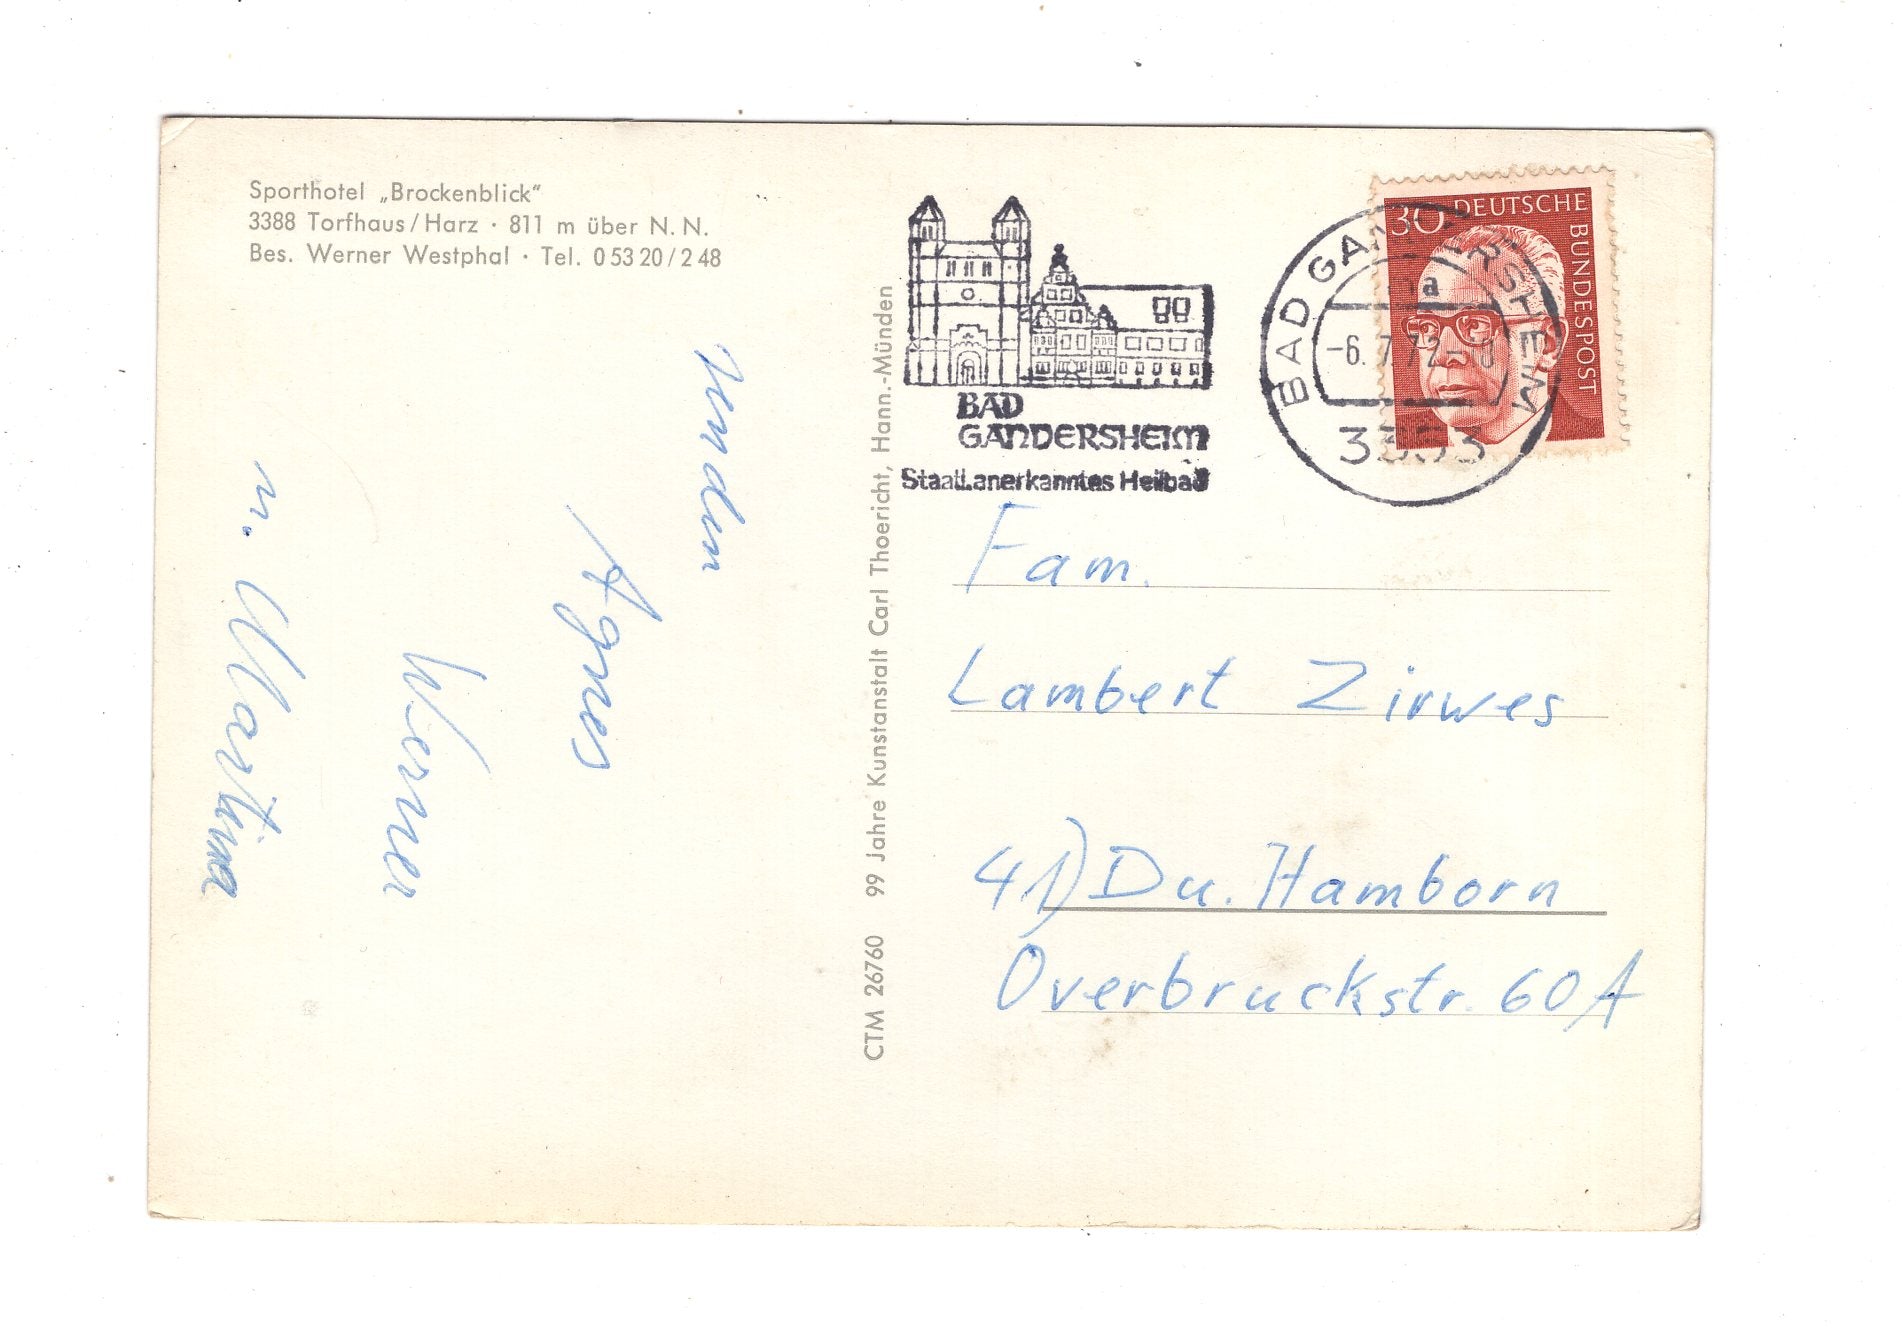 Sporthotel „Brockenblick“
3388 Torfhaus/Harz · 811 m über N. N.
Bes. Werner Westphal · Tel. 0 53 20/2 48
senden
Agnes
Werner
u. Martina
CTM 26760 99 Jahre Kunstanstalt Carl Thoericht, Hann.-Münden
BAD
GANDERSHEIM
Staatl. anerkanntes Heilbad
BAD GANDERSHEIM
a
-6.7.72-
3353
30 DEUTSCHE BUNDESPOST
Fam.
Lambert Zirwes
41) Du. Hamborn
Overbruckstr. 60 A